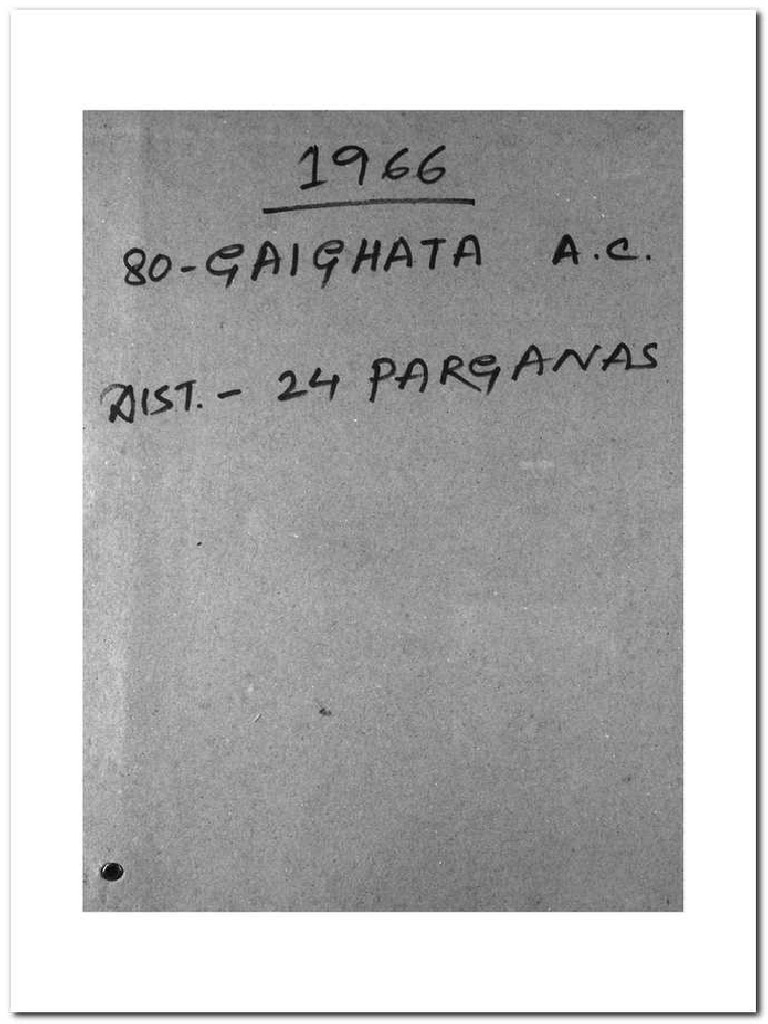 1966
80-GAIGHATA A.C.
DIST.- 24 PARGANAS